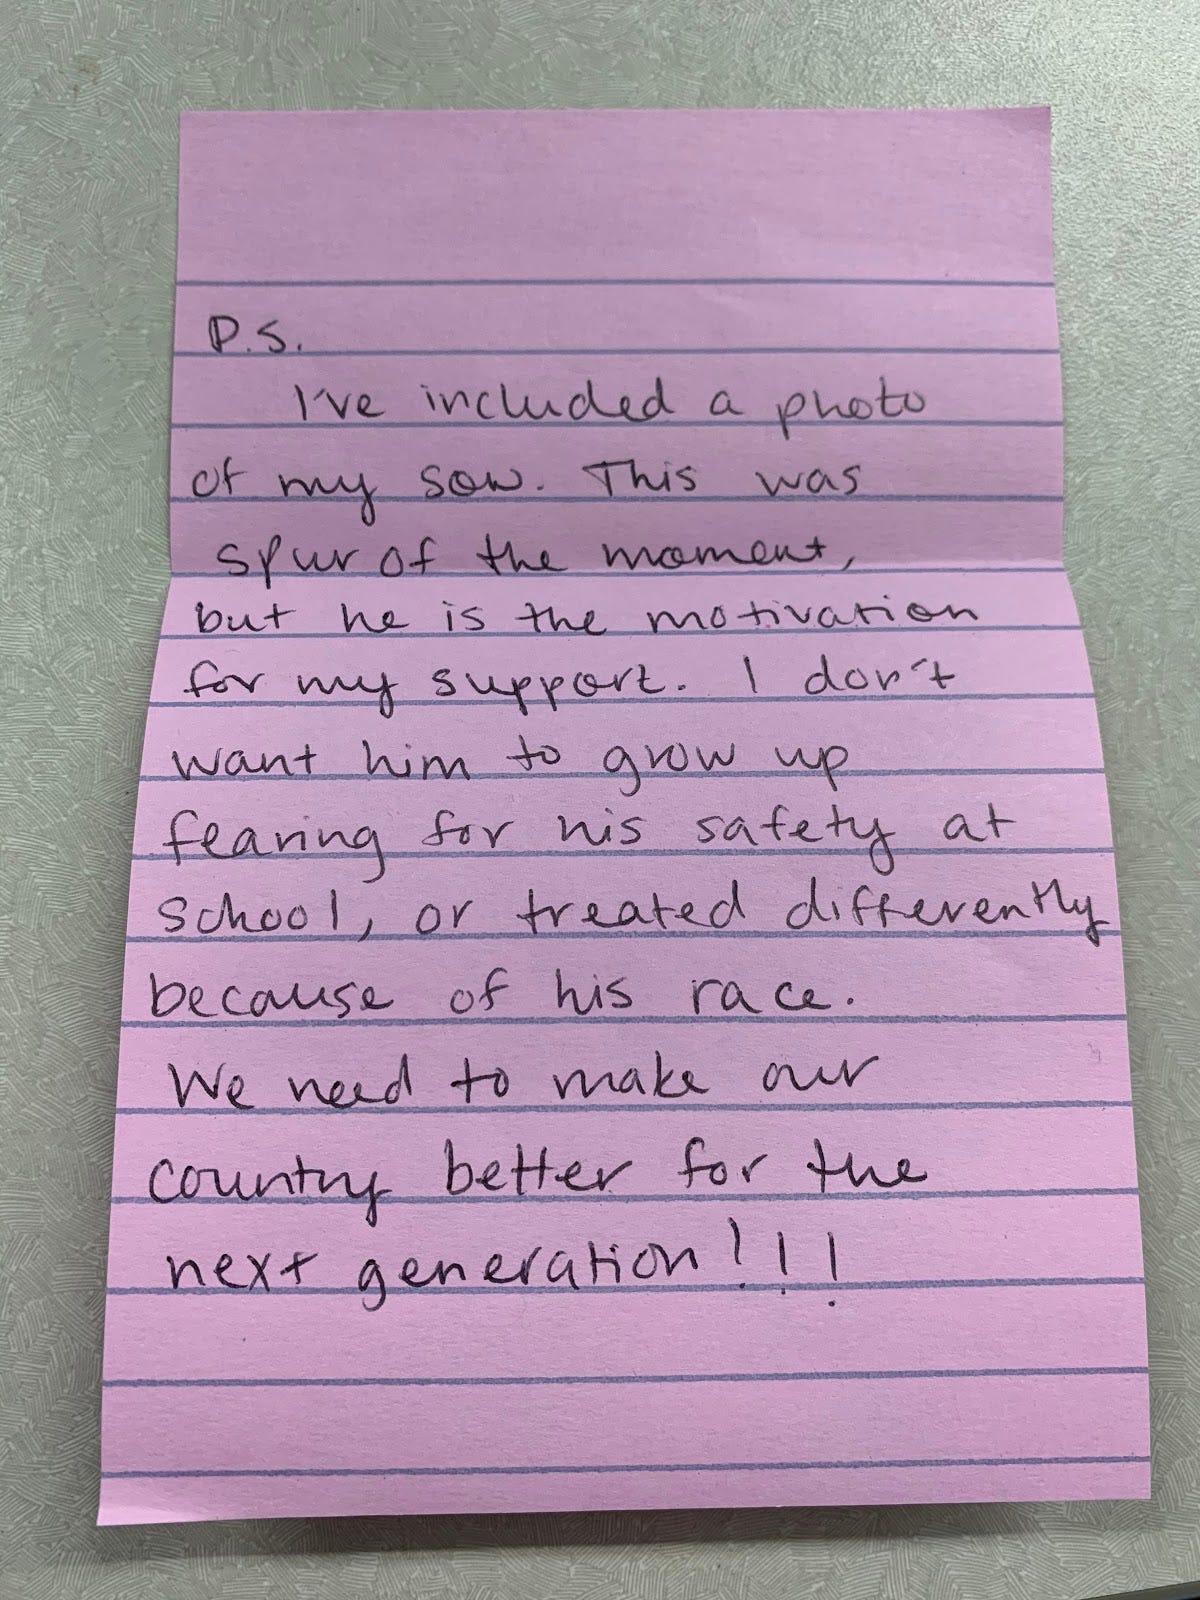 P.S.
I've included a photo
of my son. This was
spur of the moment,
but he is the motivation
for my support. I don't
want him to grow up
fearing for his safety at
school, or treated differently
because of his race.
We need to make our
country better for the
next generation!!!